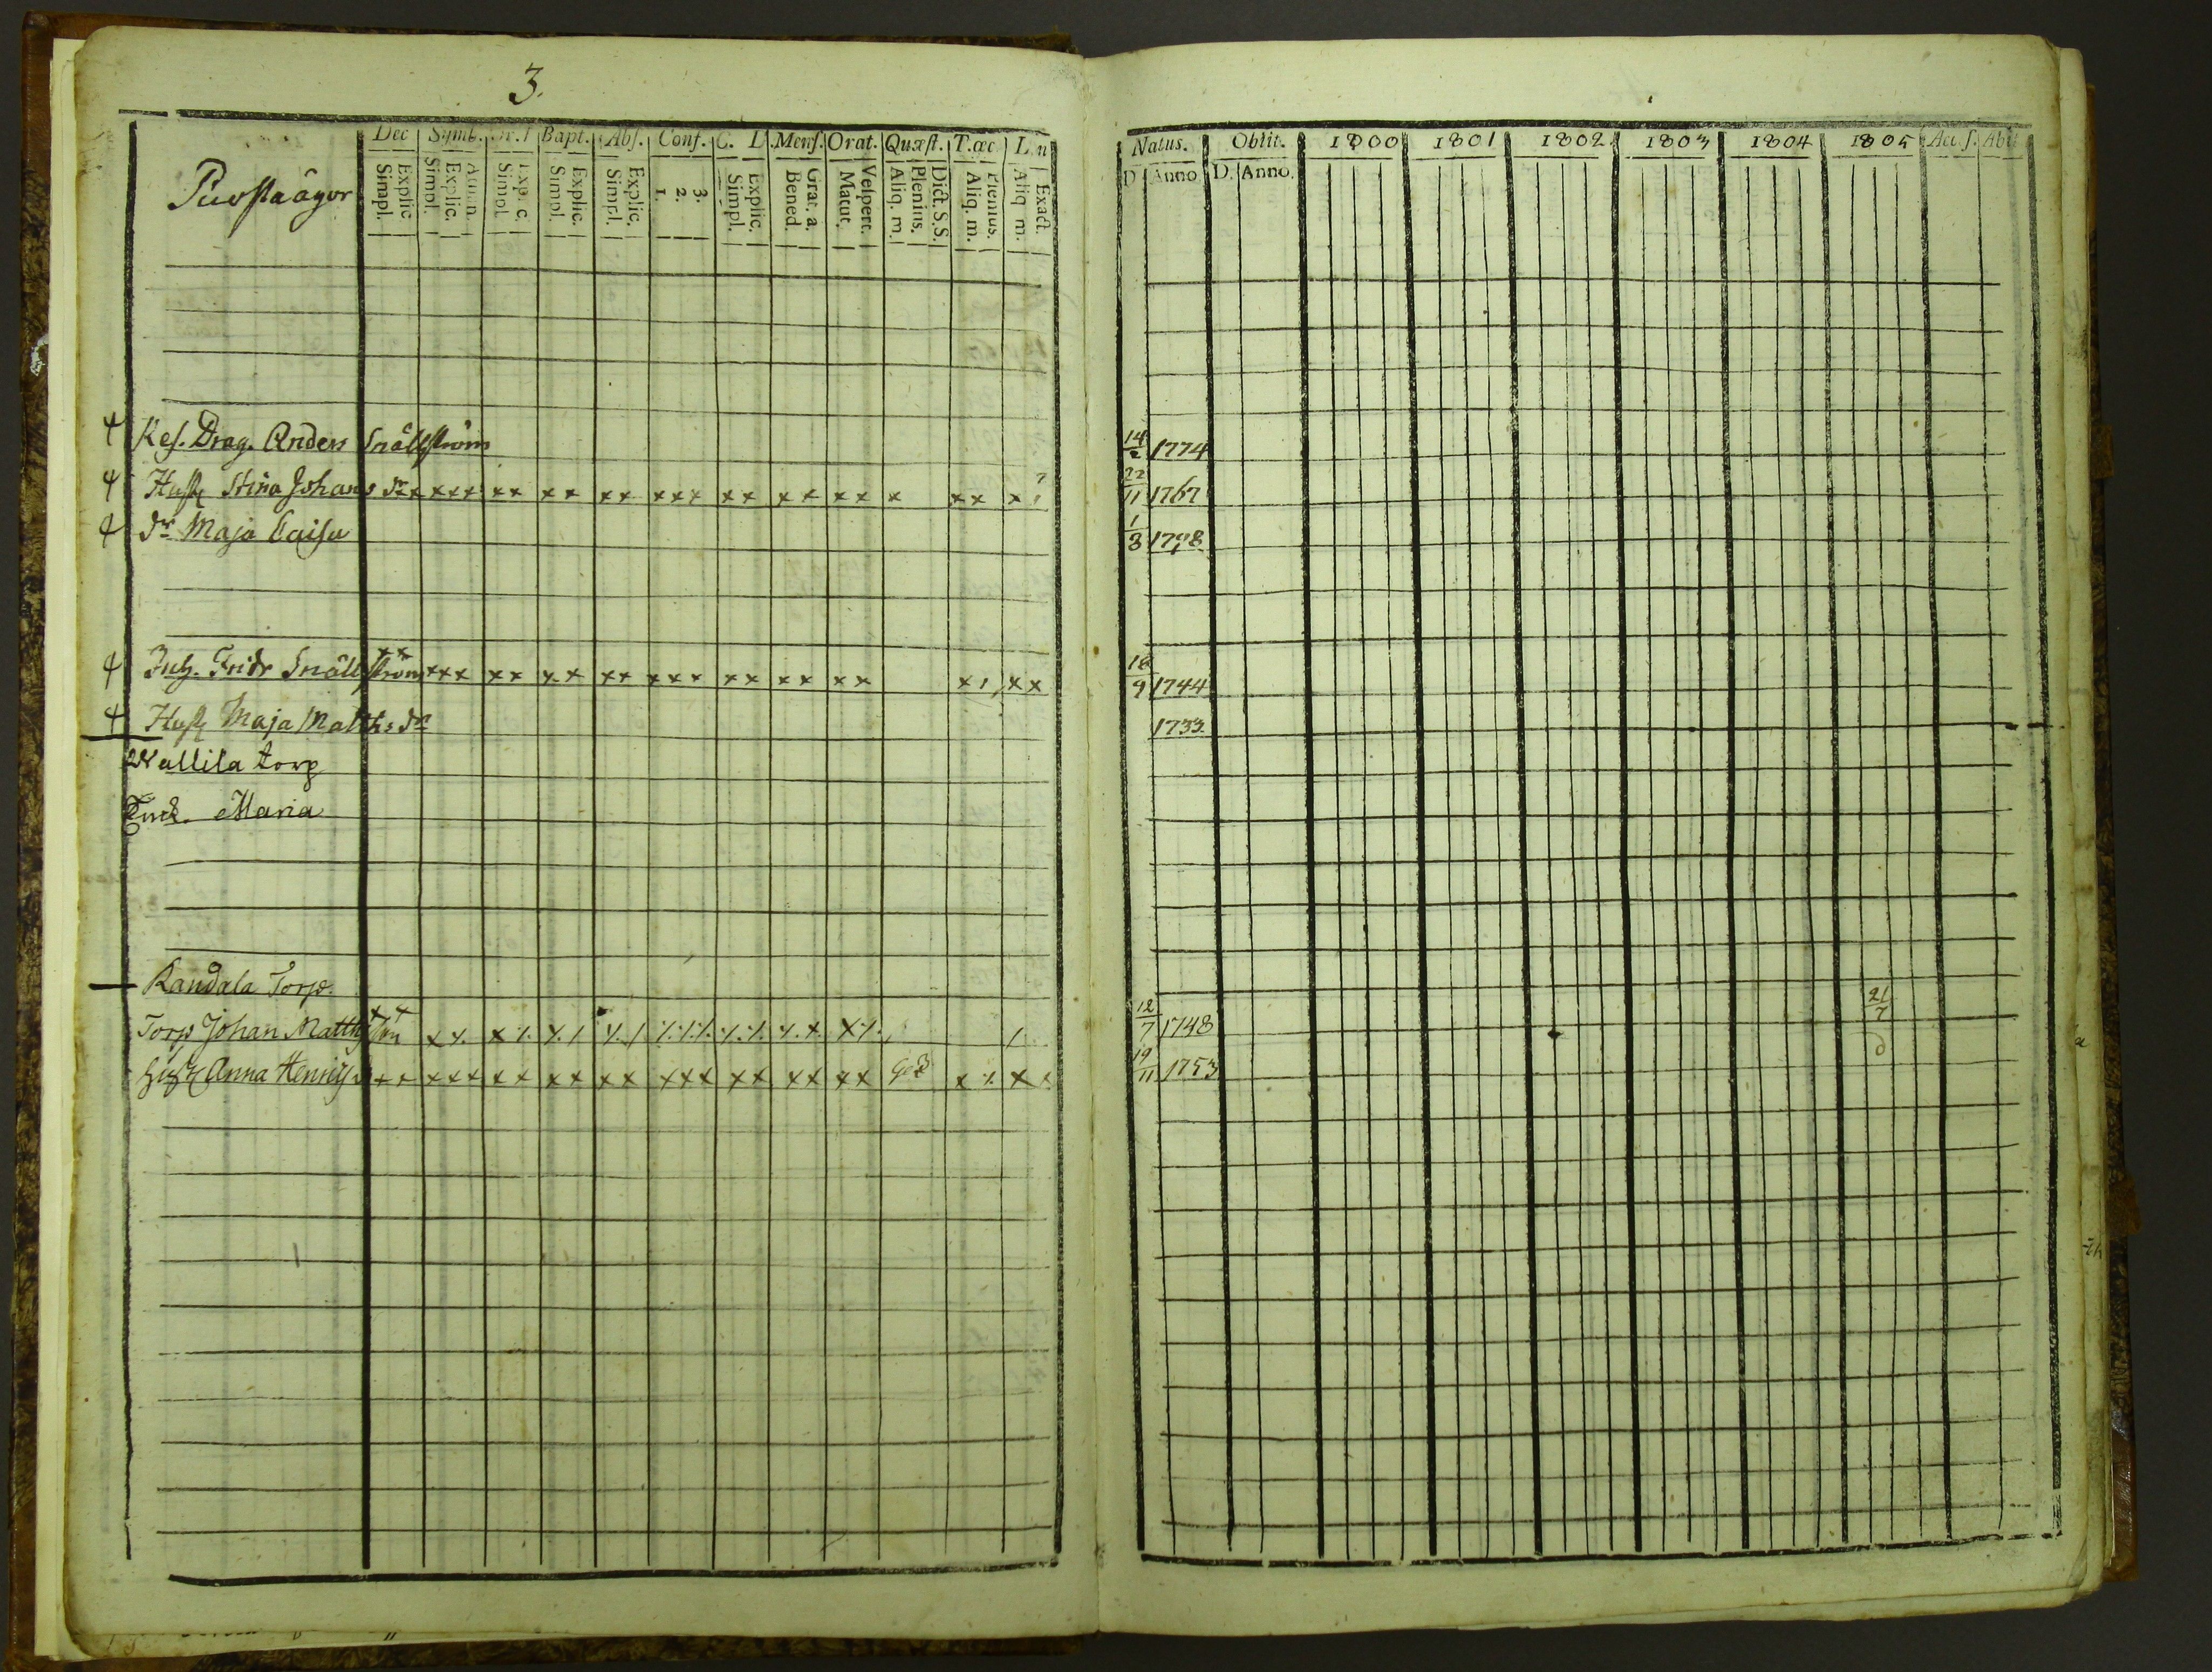 3.
Dec Symb. Bapt. Abs. Conf. C. D. Mens. Orat. Quæst. T. œc.
Explic. Simpl. Explic. Simpl. Simpl. Explic. Simpl. Explic. Simpl. 3. 2. 1. Explic. Simpl. Grat. a. Bened. Vespert. Matut. Dict. S.S. Plenius. Aliq. m. Plenius. Aliq. m. Exact. Aliq. m.
Natus. Obiit. 1800 1801 1802 1803 1804 1805 Acc. s. Abit
D. Anno D. Anno.
Res. Drag. Anders Snällström 14/2 1774
Hust Stina Johans dr x x x x x x x x x x x x x x x x x x x x x x x 22/11 1767
dr Maja Caisa 1/8 1798
Inh. Fridr Snällström x x x x x x x x x x x x x x x x x x x x x x 18/9 1744
Hust Maja Matths dr 1733
Wallila torp
Maria
Randala Torp.
Torp Johan Matthsson 12/7 1748 21/7
Hust Anna Henrics 19/11 1753